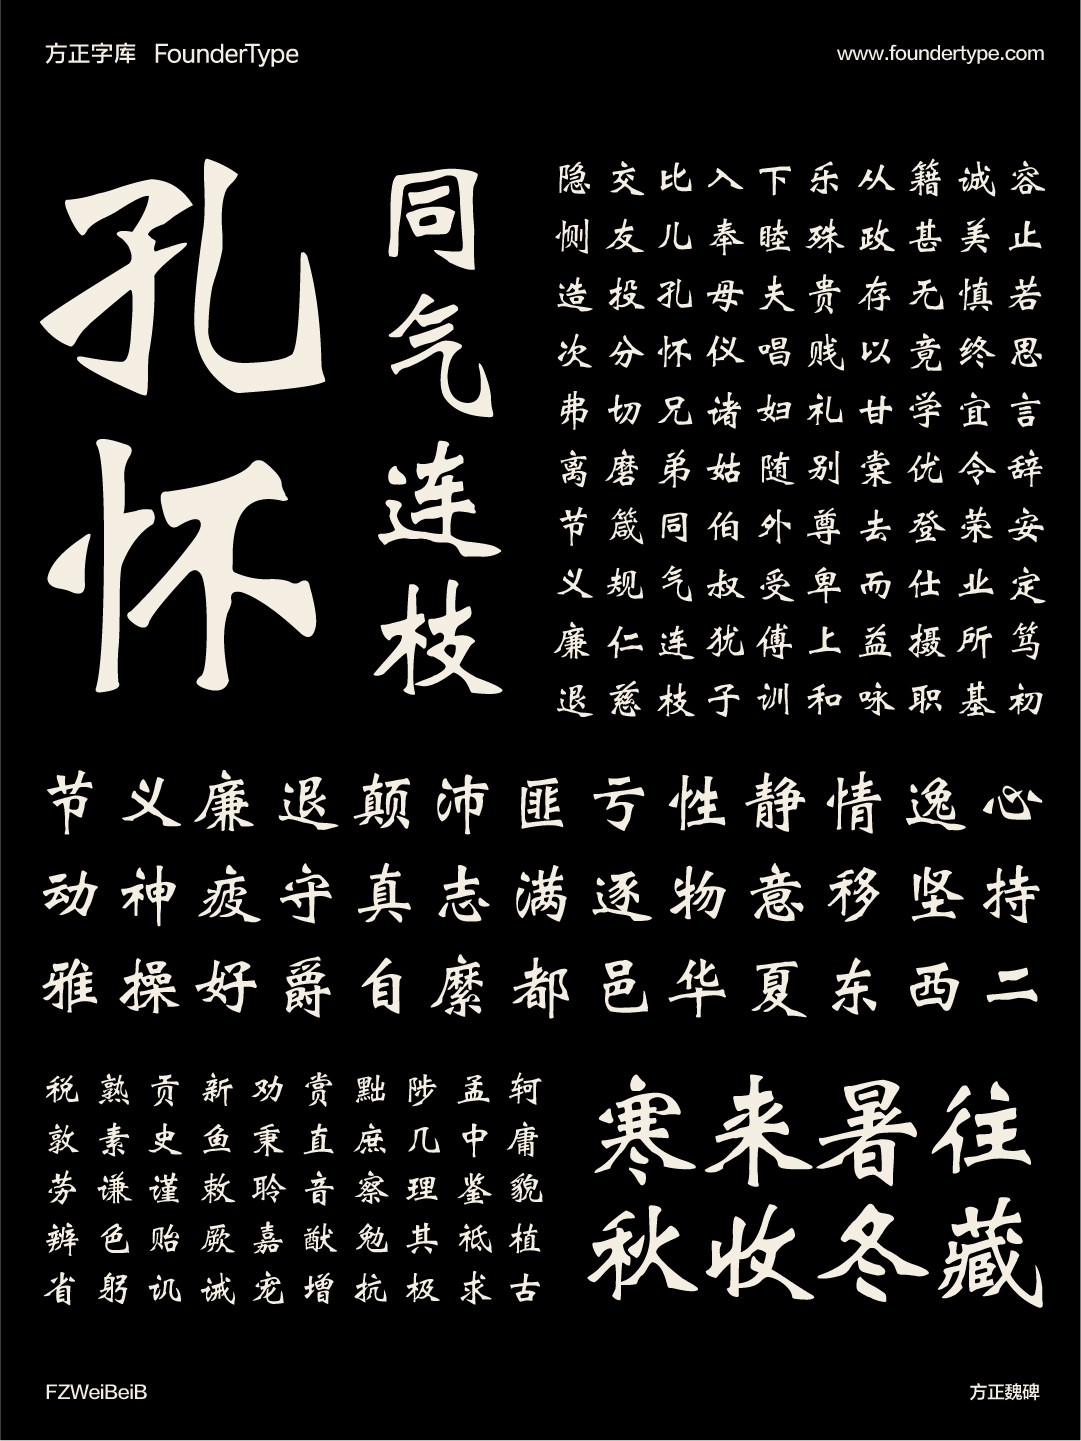 方正字库 FounderType
www.foundertype.com
孔怀
同气连枝
容止若思言辞安定笃初
诚美慎终宜令荣业所基
籍甚无竟学优登仕摄职
从政存以甘棠去而益咏
乐殊贵贱礼别尊卑上和
下睦夫唱妇随外受傅训
入奉母仪诸姑伯叔犹子
比儿孔怀兄弟同气连枝
交友投分切磨箴规仁慈
隐恻造次弗离节义廉退
节义廉退颠沛匪亏性静情逸心
动神疲守真志满逐物意移坚持
雅操好爵自縻都邑华夏东西二
税熟贡新劝赏黜陟孟轲
敦素史鱼秉直庶几中庸
劳谦谨敕聆音察理鉴貌
辨色贻厥嘉猷勉其祗植
省躬讥诫宠增抗极求古
寒来暑往
秋收冬藏
FZWeiBeiB
方正魏碑